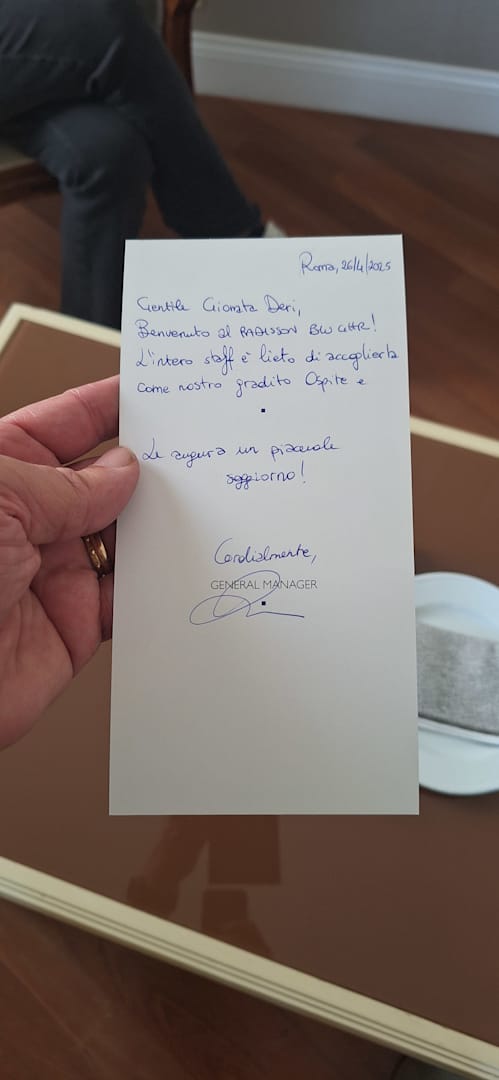 Roma, 26/4/2025
Gentile Gionata Deri,
Benvenuto al RADISSON BLU GHR!
L'intero staff è lieto di accoglierla
come nostro gradito Ospite e
Le augura un piacevole
soggiorno!
Cordialmente,
GENERAL MANAGER